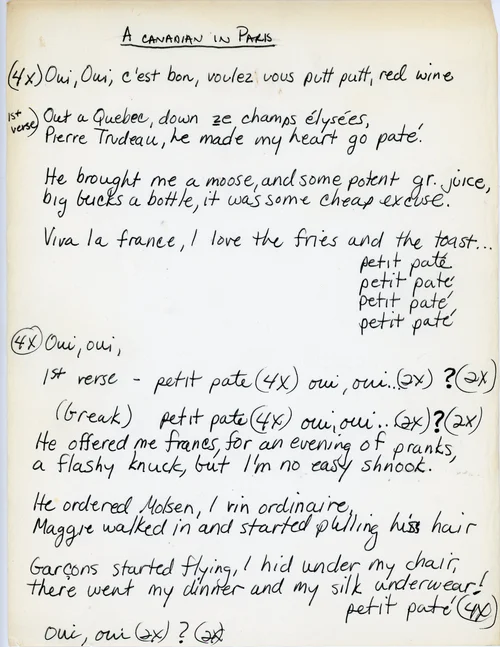 A CANADIAN IN PARIS
(4X) Oui, Oui, c'est bon, voulez vous putt putt, red wine
1st verse) Out a Quebec, down ze champs élysées,
Pierre Trudeau, he made my heart go paté.
He brought me a moose, and some potent gr. juice,
big bucks a bottle, it was some cheap excuse.
Viva la france, I love the fries and the toast...
petit paté
petit paté
petit paté
petit paté
(4X) Oui, oui,
1st verse - petit pate (4X) oui, oui..(2X) ? (2X)
(Break) petit paté (4X) oui, oui..(2X) ? (2X)
He offered me francs, for an evening of pranks,
a flashy knuck, but I'm no easy shnook.
He ordered Molsen, I vin ordinaire,
Maggie walked in and started pulling his hair
Garçons started flying, I hid under my chair,
there went my dinner and my silk underwear!
petit paté (4X)
Oui, oui (2X) ? (2X)